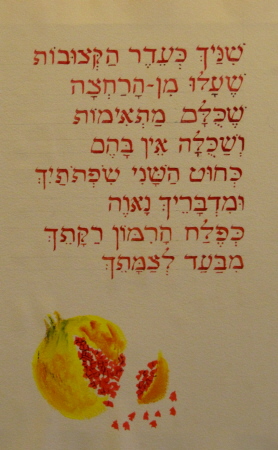 שִׁנַּיִךְ כְּעֵדֶר הַקְּצוּבוֹת
שֶׁעָלוּ מִן-הָרַחְצָה
שֶׁכֻּלָּם מַתְאִימוֹת
וְשַׁכֻּלָה אֵין בָּהֶם
כְּחוּט הַשָּׁנִי שִׂפְתֹתַיִךְ
וּמִדְבָּרֵיךְ נָאוֶה
כְּפֶלַח הָרִמּוֹן רַקָּתֵךְ
מִבַּעַד לְצַמָּתֵךְ